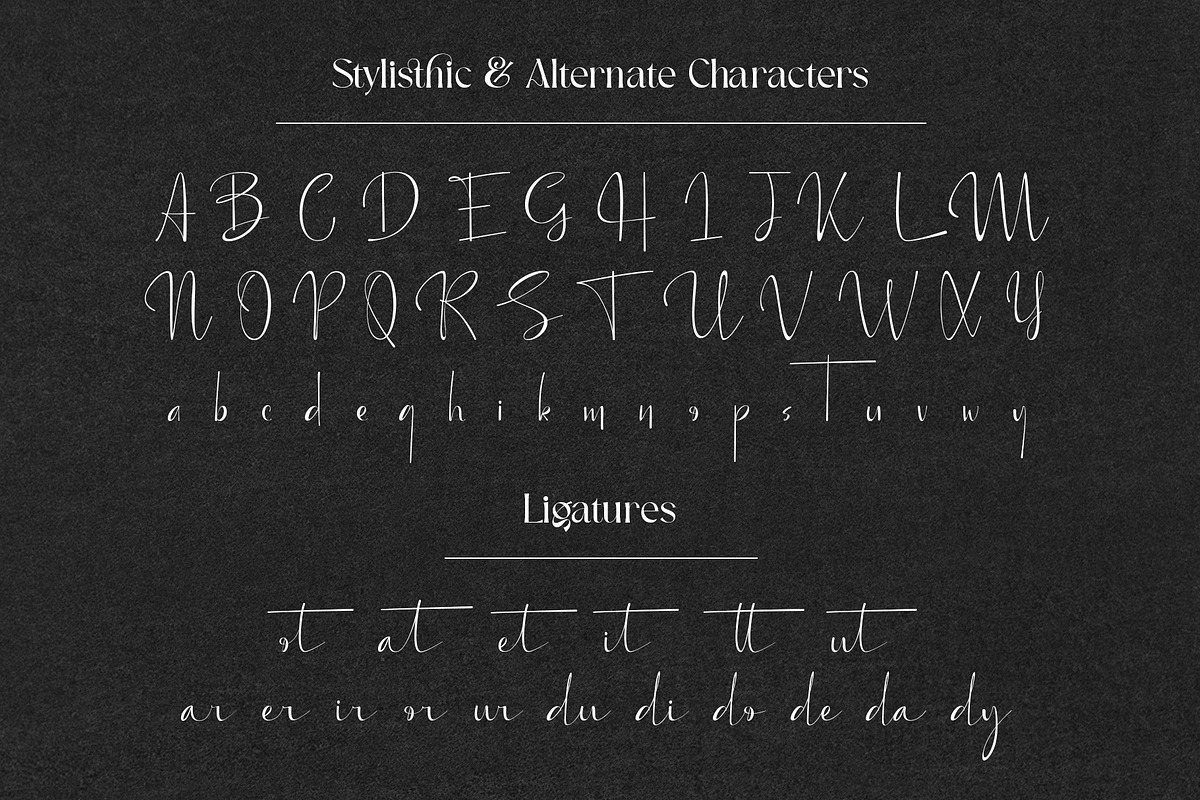 Stylisthic & Alternate Characters
A B C D E G H I J K L M
N O P Q R S T U V W X Y
a b c d e q h i k m n o p s T u v w y
Ligatures
ot at et it tt ut
ar er ir or ur du di do de da dy